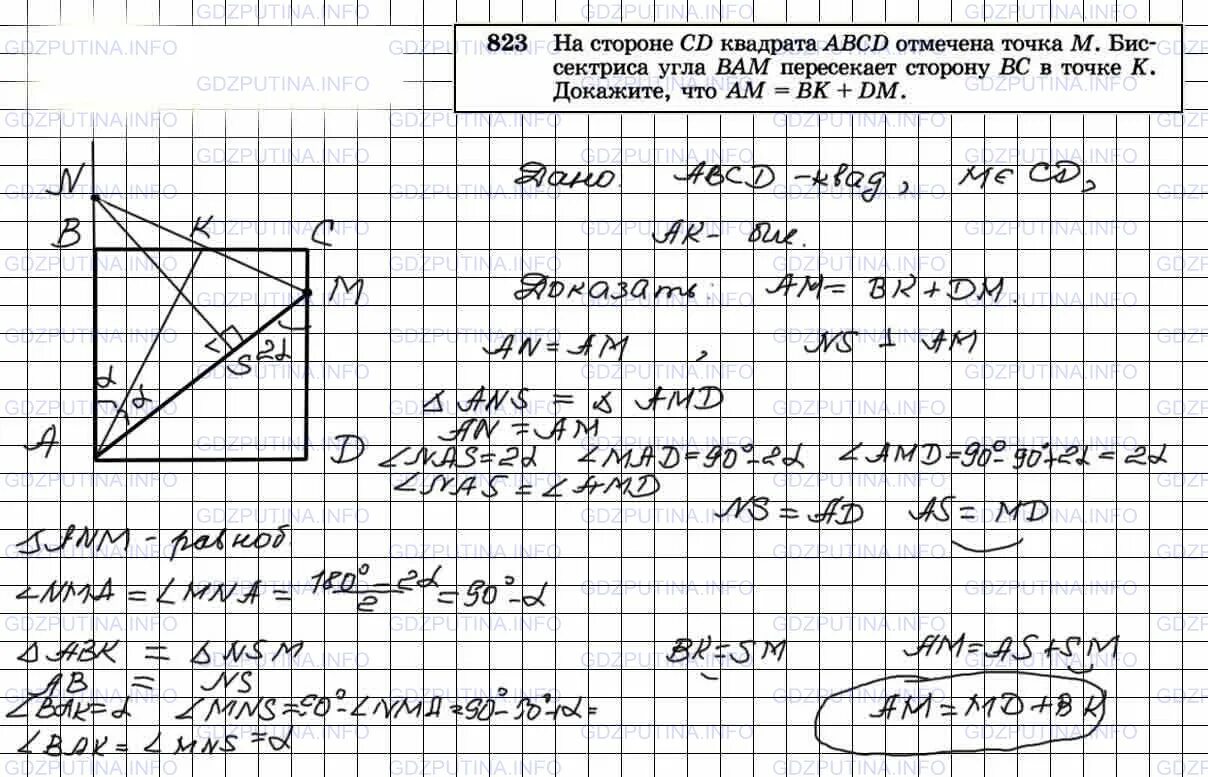 GDZPUTINA.INFO
823 На стороне CD квадрата ABCD отмечена точка M. Бис-
сектриса угла BAM пересекает сторону BC в точке K.
Докажите, что AM = BK + DM.
Дано: ABCD - квад, M ∈ CD,
AK - бис.
Доказать: AM = BK + DM.
N
B K C
M
S 2α
α α
A D
AN = AM, NS ⊥ AM
△ ANS = △ AMD
AN = AM
∠NAS = 2α ∠MAD = 90° - 2α ∠AMD = 90° - 90° + 2α = 2α
∠NAS = ∠AMD
NS = AD AS = MD
△ANM - равноб
∠NMA = ∠MNA = (180° - 2α)/2 = 90° - α
△ ABK = △ NSM BK = SM AM = AS + SM
AB = NS
∠BAK = α ∠MNS = 90° - ∠NMA = 90° - 90° + α = AM = MD + BK
∠BAK = ∠MNS = α